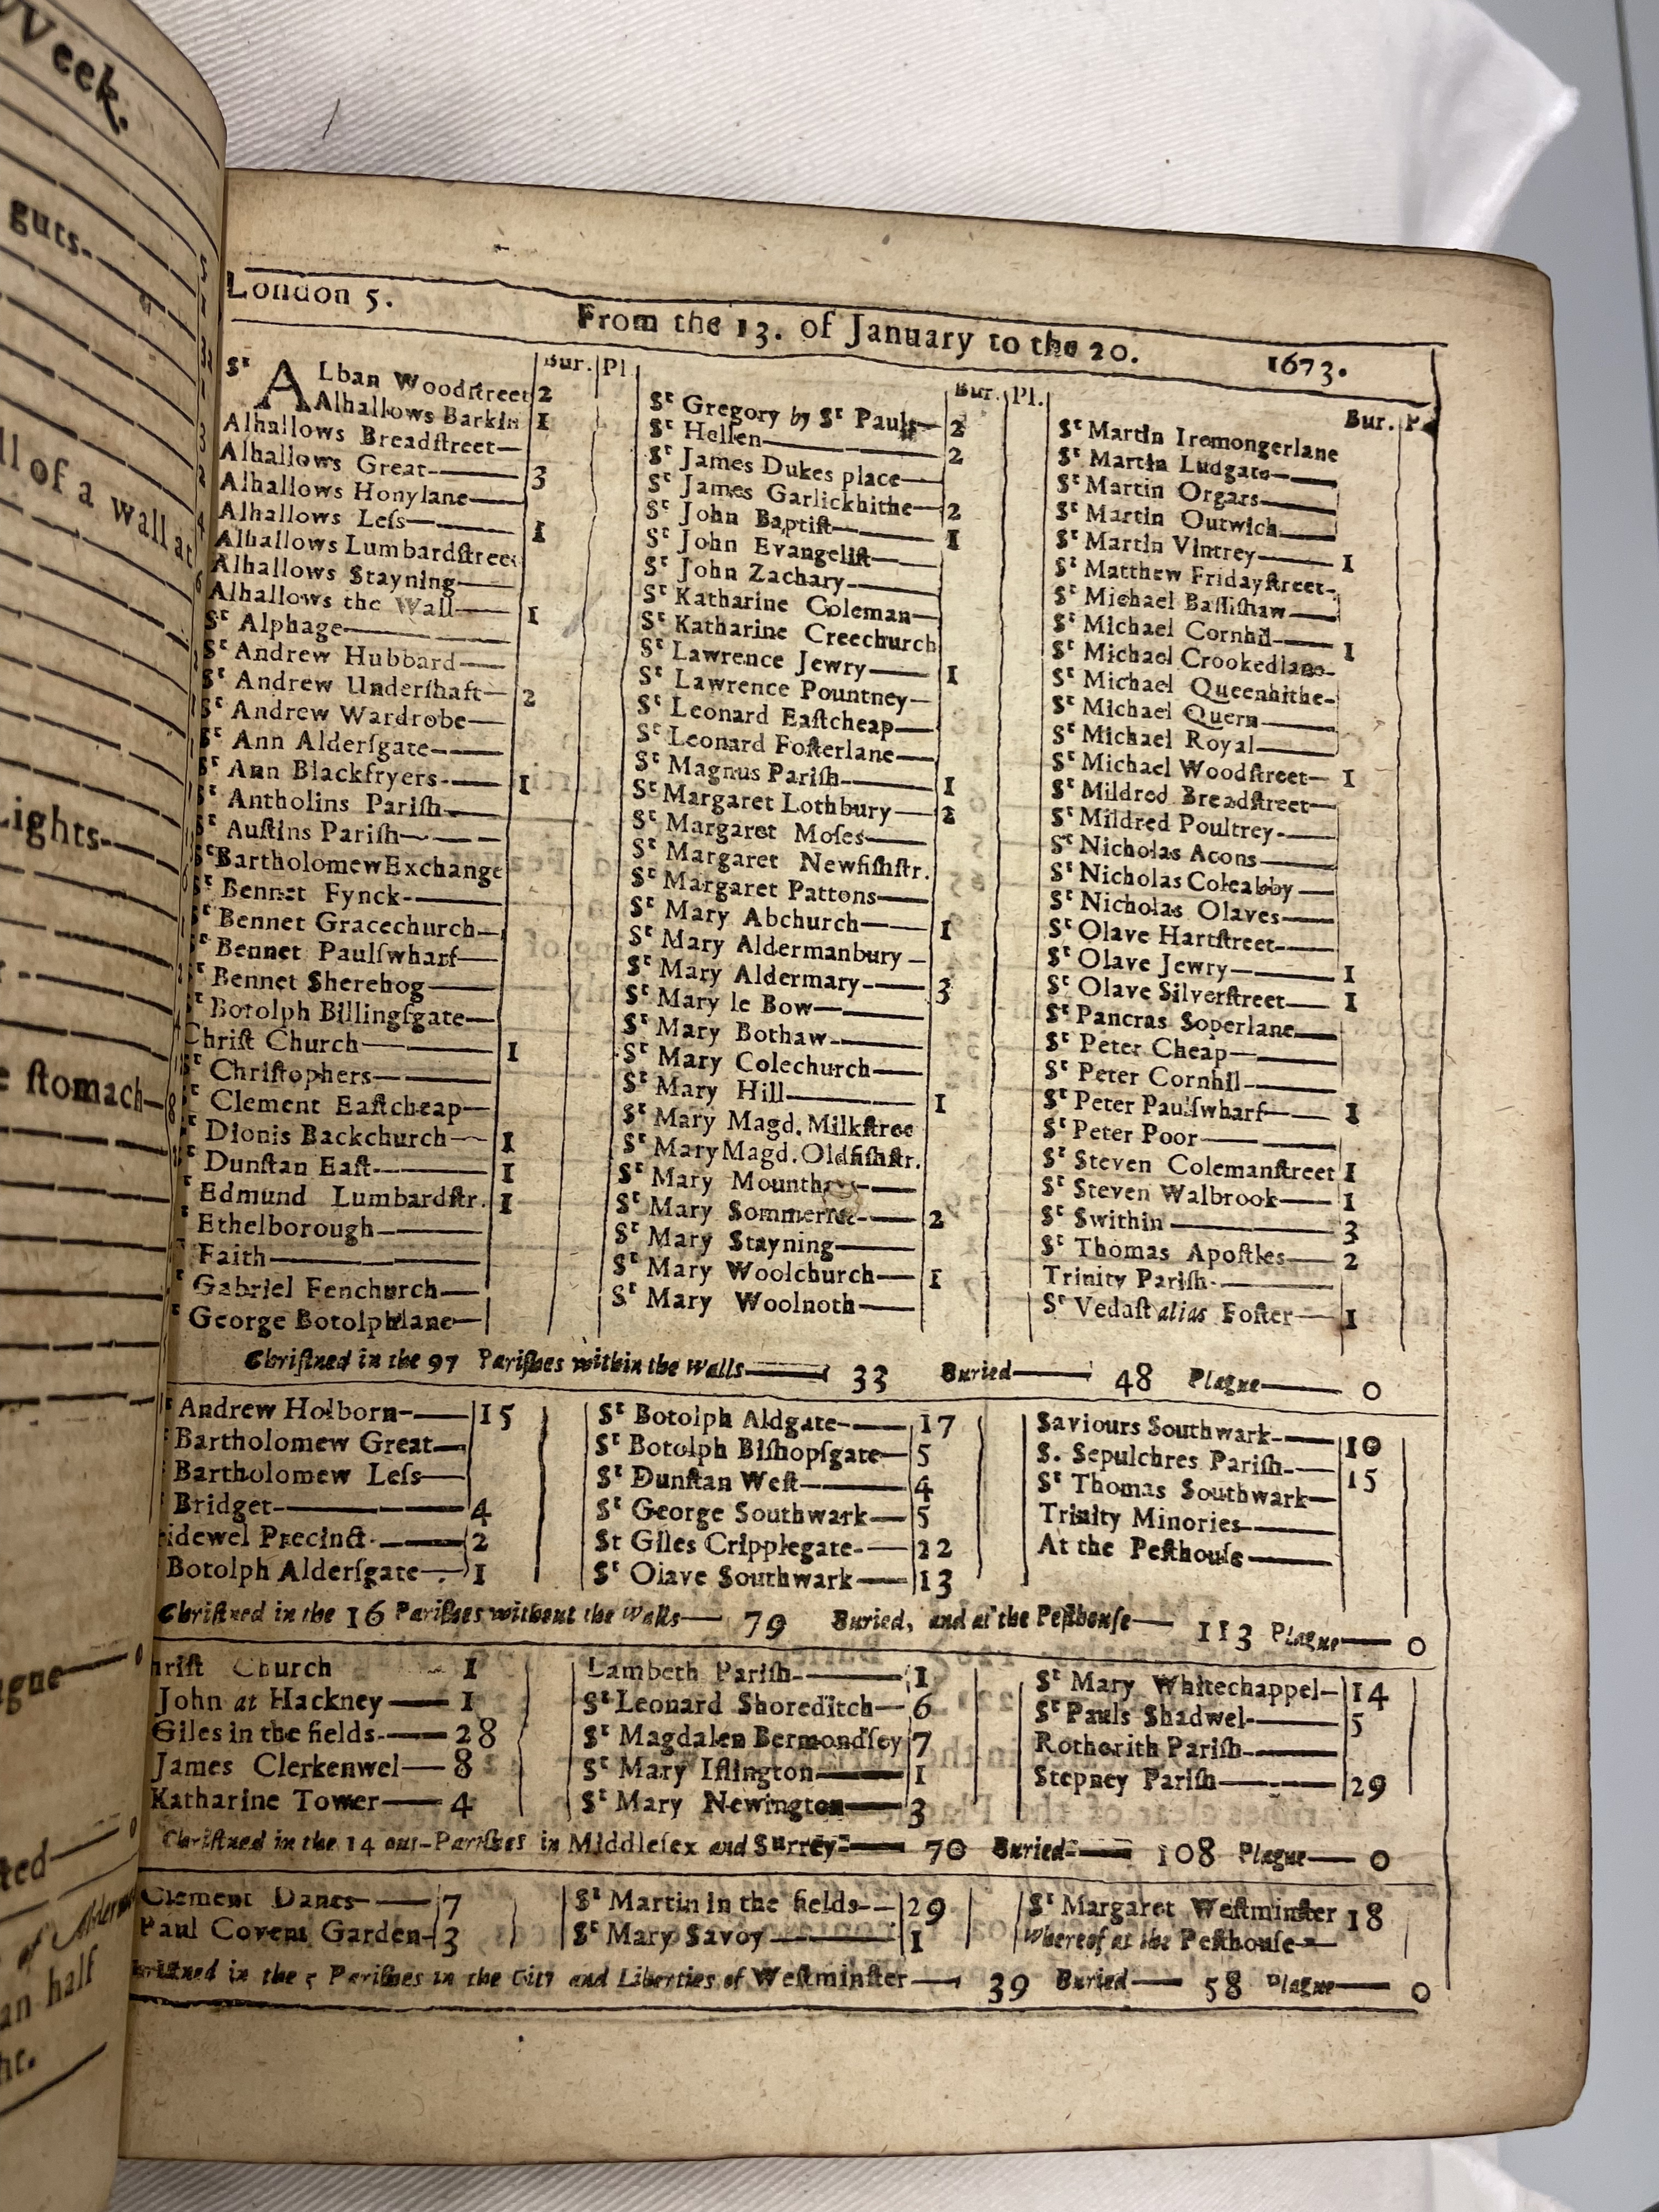 Week.
guts-
ll of a wall at
Lights-
e ſtomach-
London 5. From the 13. of January to the 20. 1673.
Bur. Pl.
St ALban Woodſtreet 2
Alhallows Barkin 1
Alhallows Breadſtreet
Alhallows Great 3
Alhallows Honylane
Alhallows Leſs 1
Alhallows Lumbardſtreet
Alhallows Stayning
Alhallows the Wall 1
St Alphage
St Andrew Hubbard
St Andrew Underſhaft 2
St Andrew Wardrobe
St Ann Alderſgate
St Ann Blackfryers 1
St Antholins Pariſh
St Auſtins Pariſh
St Bartholomew Exchange
St Bennet Fynck
St Bennet Gracechurch
St Bennet Paulſwharf
St Bennet Sherehog
St Botolph Billingſgate
Chriſt Church 1
St Chriſtophers
St Clement Eaſtcheap
t Dionis Backchurch 1
t Dunſtan Eaſt 1
t Edmund Lumbardſtr. 1
t Ethelborough
Faith
t Gabriel Fenchurch
t George Botolphlane
Bur. Pl.
St Gregory by St Pauls 2
St Hellen 2
St James Dukes place
St James Garlickhithe 2
St John Baptiſt 1
St John Evangeliſt
St John Zachary
St Katharine Coleman
St Katharine Creechurch
St Lawrence Jewry 1
St Lawrence Pountney
St Leonard Eaſtcheap
St Leonard Foſterlane
St Magnus Pariſh 1
St Margaret Lothbury 2
St Margaret Moſes
St Margaret Newfiſhſtr.
St Margaret Pattons
St Mary Abchurch 1
St Mary Aldermanbury
St Mary Aldermary 3
St Mary le Bow
St Mary Bothaw
St Mary Colechurch
St Mary Hill 1
St Mary Magd. Milkſtree
St Mary Magd. Oldfiſhſtr.
St Mary Mounthaw
St Mary Sommerſet 2
St Mary Stayning
St Mary Woolchurch 1
St Mary Woolnoth
Bur. P
St Martin Iremongerlane
St Martin Ludgate
St Martin Orgars
St Martin Outwich
St Martin Vintrey 1
St Matthew Fridayſtreet
St Michael Baſſiſhaw
St Michael Cornhil 1
St Michael Crookedlane
St Michael Queenhithe
St Michael Quern
St Michael Royal
St Michael Woodſtreet 1
St Mildred Breadſtreet
St Mildred Poultrey
St Nicholas Acons
St Nicholas Coleabby
St Nicholas Olaves
St Olave Hartſtreet
St Olave Jewry 1
St Olave Silverſtreet 1
St Pancras Soperlane
St Peter Cheap
St Peter Cornhil
St Peter Paulſwharf 1
St Peter Poor
St Steven Colemanſtreet 1
St Steven Walbrook 1
St Swithin 3
St Thomas Apoſtles 2
Trinity Pariſh
St Vedaſt alias Foſter 1
Chriſtned in the 97 Pariſhes within the Walls 33 Buried 48 Plague 0
Andrew Holborn 15
Bartholomew Great
Bartholomew Leſs
Bridget 4
idewel Precinct 2
Botolph Alderſgate 1
St Botolph Aldgate 17
St Botolph Biſhopſgate 5
St Dunſtan Weſt 4
St George Southwark 5
St Giles Cripplegate 22
St Olave Southwark 13
Saviours Southwark 10
S. Sepulchres Pariſh 15
St Thomas Southwark
Trinity Minories
At the Peſthouſe
Chriſtned in the 16 Pariſhes without the Walls 79 Buried, and at the Peſthouſe 113 Plague 0
hriſt Church 1
John at Hackney 1
Giles in the fields 28
James Clerkenwel 8
Katharine Tower 4
Lambeth Pariſh 1
St Leonard Shoreditch 6
St Magdalen Bermondſey 7
St Mary Iſlington 1
St Mary Newington 3
St Mary Whitechappel 14
St Pauls Shadwel 5
Rotherith Pariſh
Stepney Pariſh 29
Chriſtned in the 14 out-Pariſhes in Middleſex and Surrey 70 Buried 108 Plague 0
Clement Danes 7
Paul Covent Garden 3
St Martin in the fields 29
St Mary Savoy 1
St Margaret Weſtminſter 18
Whereof at the Peſthouſe
riſtned in the 5 Pariſhes in the City and Liberties of Weſtminſter 39 Buried 58 Plague 0